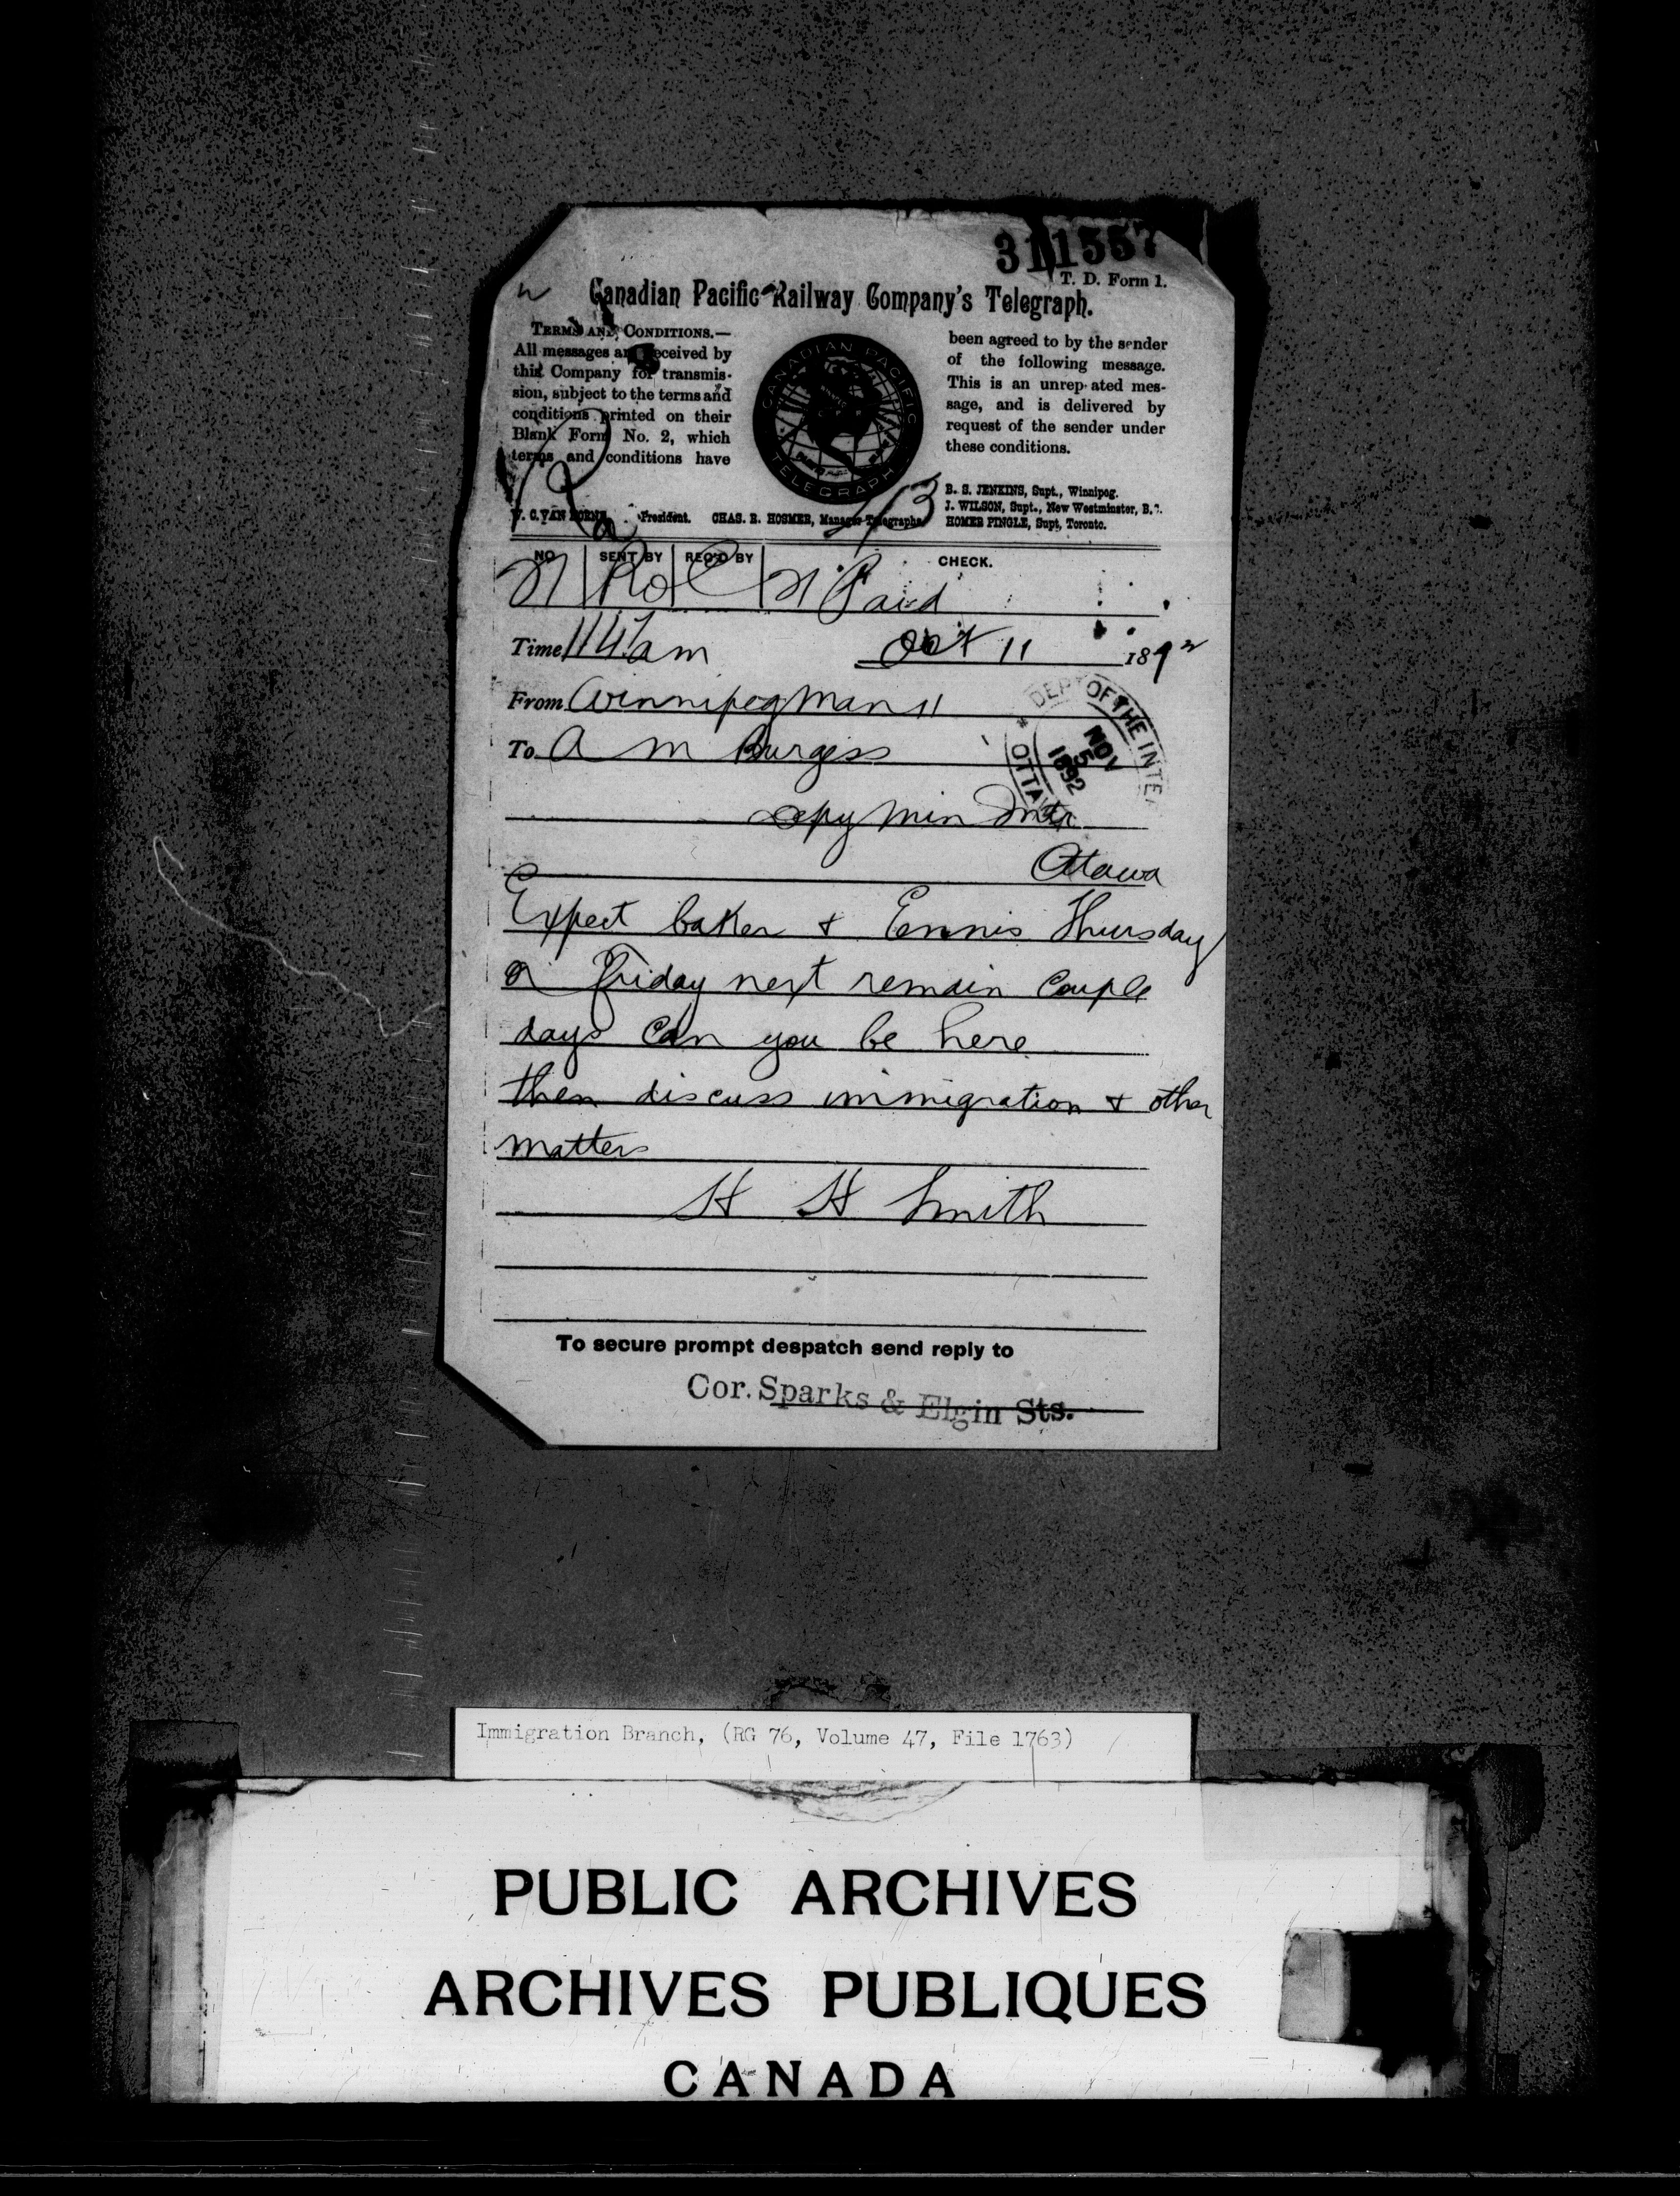 311557
T. D. Form 1.
Canadian Pacific Railway Company's Telegraph.
TERMS AND CONDITIONS.—
All messages are received by
this Company for transmis-
sion, subject to the terms and
conditions printed on their
Blank Form No. 2, which
terms and conditions have
CANADIAN PACIFIC
TELEGRAPH
been agreed to by the sender
of the following message.
This is an unrepeated mes-
sage, and is delivered by
request of the sender under
these conditions.
W. C. VAN HORNE, President. CHAS. R. HOSMER, Manager Telegraphs.
B. S. JENKINS, Supt., Winnipeg.
J. WILSON, Supt., New Westminster, B.C.
HOMER PINGLE, Supt, Toronto.
NO. SENT BY REC'D BY CHECK.
21 Ro C 21 Paid
Time 1147 am Oct 11 1892
From Winnipeg Man 11
To A M Burgess
Depy Min Intr
Ottawa
DEPT OF THE INTE
NOV
5
1892
OTTAWA
Expect baker & Ennis Thursday
or Friday next remain Couple
days Can you be here
then discuss immigration & other
matters
H H Smith
To secure prompt despatch send reply to
Cor. Sparks & Elgin Sts.
Immigration Branch, (RG 76, Volume 47, File 1763)
PUBLIC ARCHIVES
ARCHIVES PUBLIQUES
CANADA